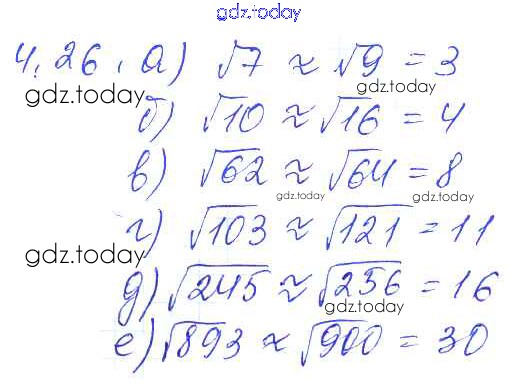 gdz.today
4.26. а) √7 ≈ √9 = 3
gdz.today
б) √10 ≈ √16 = 4
в) √62 ≈ √64 = 8
gdz.today gdz.today
г) √103 ≈ √121 = 11
gdz.today
д) √245 ≈ √256 = 16
gdz.today
е) √893 ≈ √900 = 30